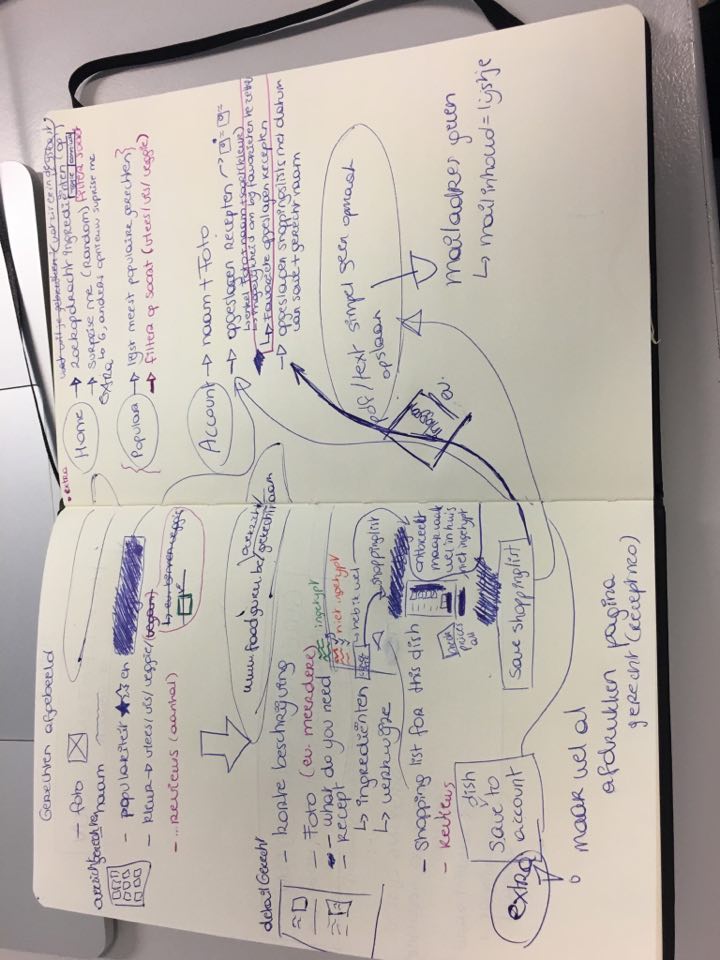 Gerechten afgebeeld
- foto
overzicht gerechten
- naam
- populariteit en
- kleur → vlees/vis/veggie/vegan
↳ ev. binnen veggie
- ... reviews (aantal)
www.foodguru.be/overzicht/gerechtnaam
detail Gerecht
- korte beschrijving
- Foto (ev. meerdere)
- what do you need
- recept
↳ ingrediënten
↳ werkwijze
ingetypt
niet ingetypt
heb ik wel
→ shoppinglist
- shopping list for this dish
- Reviews
check prices all
ontbreekt
maar vaak
wel in huis
niet ingetypt
dish
save to
account
extra
save shoppinglist
maar wel al
afdrukken pagina
gerecht (recept nr0)
• extra
Home
→ zoekopdracht ingrediënten (op)
→ surprise me (random) filter soort
extra to 6, anders opnieuw suprise me
Populair
→ lijst meest populaire gerechten
→ filter op soort (vlees/vis/veggie)
Account → naam + Foto
→ opgeslagen recepten
↳ enkel foto + naam + soort (kleur)
↳ mogelijkheid om bij favorieten te zetten
↳ Favoriete opgeslagen recepten
→ opgeslagen shoppinglists met datum
van save + gerecht naam
pdf/text simpel geen opmaak
opslaan
inloggen
ev.
mailadres geven
↳ mailinhoud = lijstje